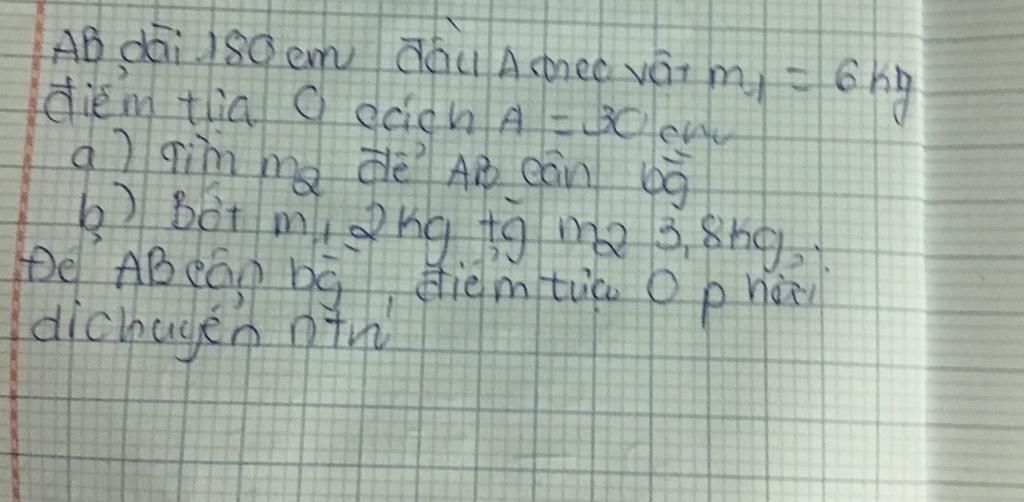 AB dài 180 cm đầu A móc vật m₁ = 6 kg
điểm tựa O cách A = 30 cm
a) Tìm m₂ để AB cân bg̃
b) Bớt m₁ 2 kg tg̃ m₂ 3,8 kg,
Để AB cân bg̃, điểm tựa O phải
di chuyển ntn